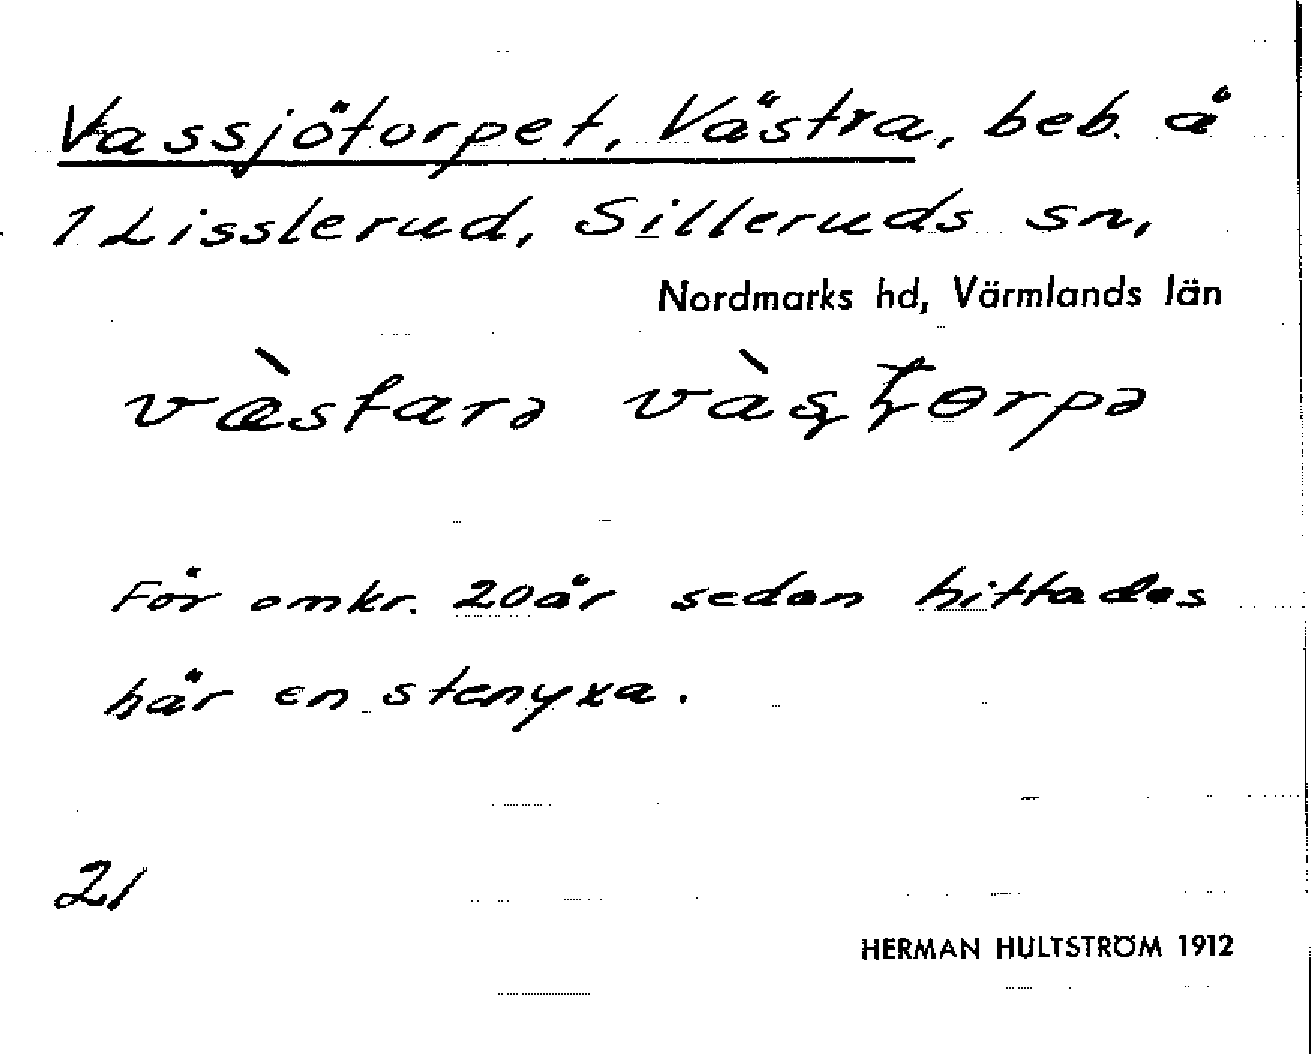 Vassjötorpet, Västra, beb. å
1 Lisslerud, Silleruds sn,
Nordmarks hd, Värmlands län
væ̀starə
För omkr. 20 år sedan hittades
här en stenyxa.
21
HERMAN HULTSTRÖM 1912